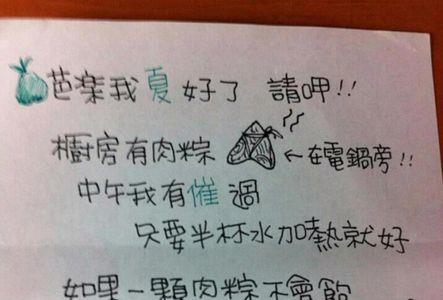 芭樂我夏好了 請呷!!
廚房有肉粽 ←在電鍋旁!!
中午我有催過
只要半杯水加熱就好
如果一顆肉粽不會飽